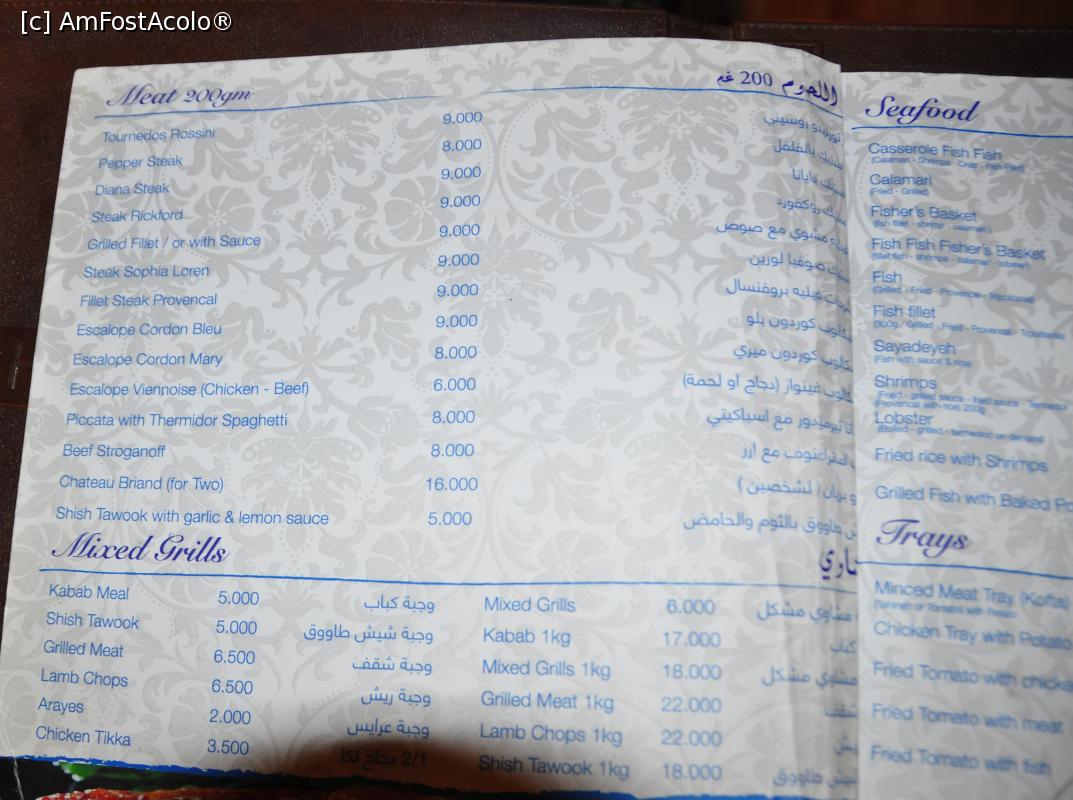 [c] AmFostAcolo®
Meat 200gm
اللحوم 200 غم
Tournedos Rossini 9.000 تورنيدو روسيني
Pepper Steak 8.000 ستيك بالفلفل
Diana Steak 9.000 ستيك دايانا
Steak Rickford 9.000 ستيك روكفورد
Grilled Fillet / or with Sauce 9.000 مشوي مع صوص
Steak Sophia Loren 9.000 ستيك صوفيا لورين
Fillet Steak Provencal 9.000 فيليه بروفنسال
Escalope Cordon Bleu 9.000 كوردون بلو
Escalope Cordon Mary 8.000 كوردون ميري
Escalope Viennoise (Chicken - Beef) 6.000 فينواز (دجاج او لحمة)
Piccata with Thermidor Spaghetti 8.000 تيرميدور مع اسباكيتي
Beef Stroganoff 8.000 مع ارز
Chateau Briand (for Two) 16.000 بريان ( لشخصين )
Shish Tawook with garlic & lemon sauce 5.000 طاووق بالثوم والحامض
Mixed Grills
Kabab Meal 5.000 وجبة كباب
Shish Tawook 5.000 وجبة شيش طاووق
Grilled Meat 6.500 وجبة شقف
Lamb Chops 6.500 وجبة ريش
Arayes 2.000 وجبة عرايس
Chicken Tikka 3.500 2/1 دجاج تكا
Mixed Grills 6.000 مشاوي مشكل
Kabab 1kg 17.000 كباب
Mixed Grills 1kg 18.000 مشاوي مشكل
Grilled Meat 1kg 22.000 شقف
Lamb Chops 1kg 22.000 ريش
Shish Tawook 1kg 18.000 شيش طاووق
Seafood
Casserole Fish Fish
(Calamari - Shrimps - Crab - Fish Fillet)
Calamari
(Fried - Grilled)
Fisher's Basket
(fish fillet - shrimp - calamari)
Fish Fish Fisher's Basket
(fillet fish - shrimps - calamari - lobster)
Fish
(Grilled - Fried - Provence - Tripolitanie)
Fish fillet
(300g / Grilled - Fried - Provencal - Tripolitanie)
Sayadeyeh
(Fish with sauce & rice)
Shrimps
(Fried - grilled sauce - fried sauce - Termedor
(Provencal with rice) 200g
Lobster
(Boiled - grilled - termedor) on demand
Fried rice with Shrimps
Grilled Fish with Baked Po
Trays
Minced Meat Tray (Kofta)
(Tahineh or Tomato) with Potato
Chicken Tray with Potato
Fried Tomato with chicke
Fried Tomato with meat
Fried Tomato with fish